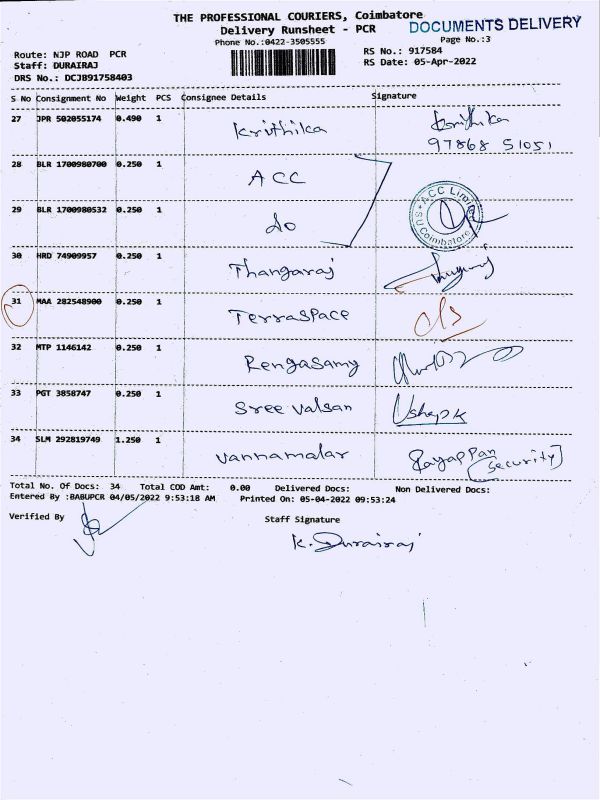 THE PROFESSIONAL COURIERS, Coimbatore
DOCUMENTS DELIVERY
Delivery Runsheet - PCR
Phone No.:0422-3505555
Page No.:3
Route: NJP ROAD PCR
RS No.: 917584
Staff: DURAIRAJ
RS Date: 05-Apr-2022
DRS No.: DCJB91758403
S No Consignment No Weight PCS Consignee Details Signature
27 JPR 502055174 0.490 1 Krithika Krithika
97868 51051
28 BLR 1700980700 0.250 1 ACC
29 BLR 1700980532 0.250 1 do
ACC Limited
Coimbatore
30 HRD 74909957 0.250 1 Thangaraj
31 MAA 282548900 0.250 1 Terraspace c/s
32 MTP 1146142 0.250 1 Rengasamy
33 PGT 3858747 0.250 1 Sree valsan Ushapk
34 SLM 292819749 1.250 1 Vannamalar Rayappan
(Security)
Total No. Of Docs: 34 Total COD Amt: 0.00 Delivered Docs: Non Delivered Docs:
Entered By :BABUPCR 04/05/2022 9:53:18 AM Printed On: 05-04-2022 09:53:24
Verified By Staff Signature
K. Durairaj